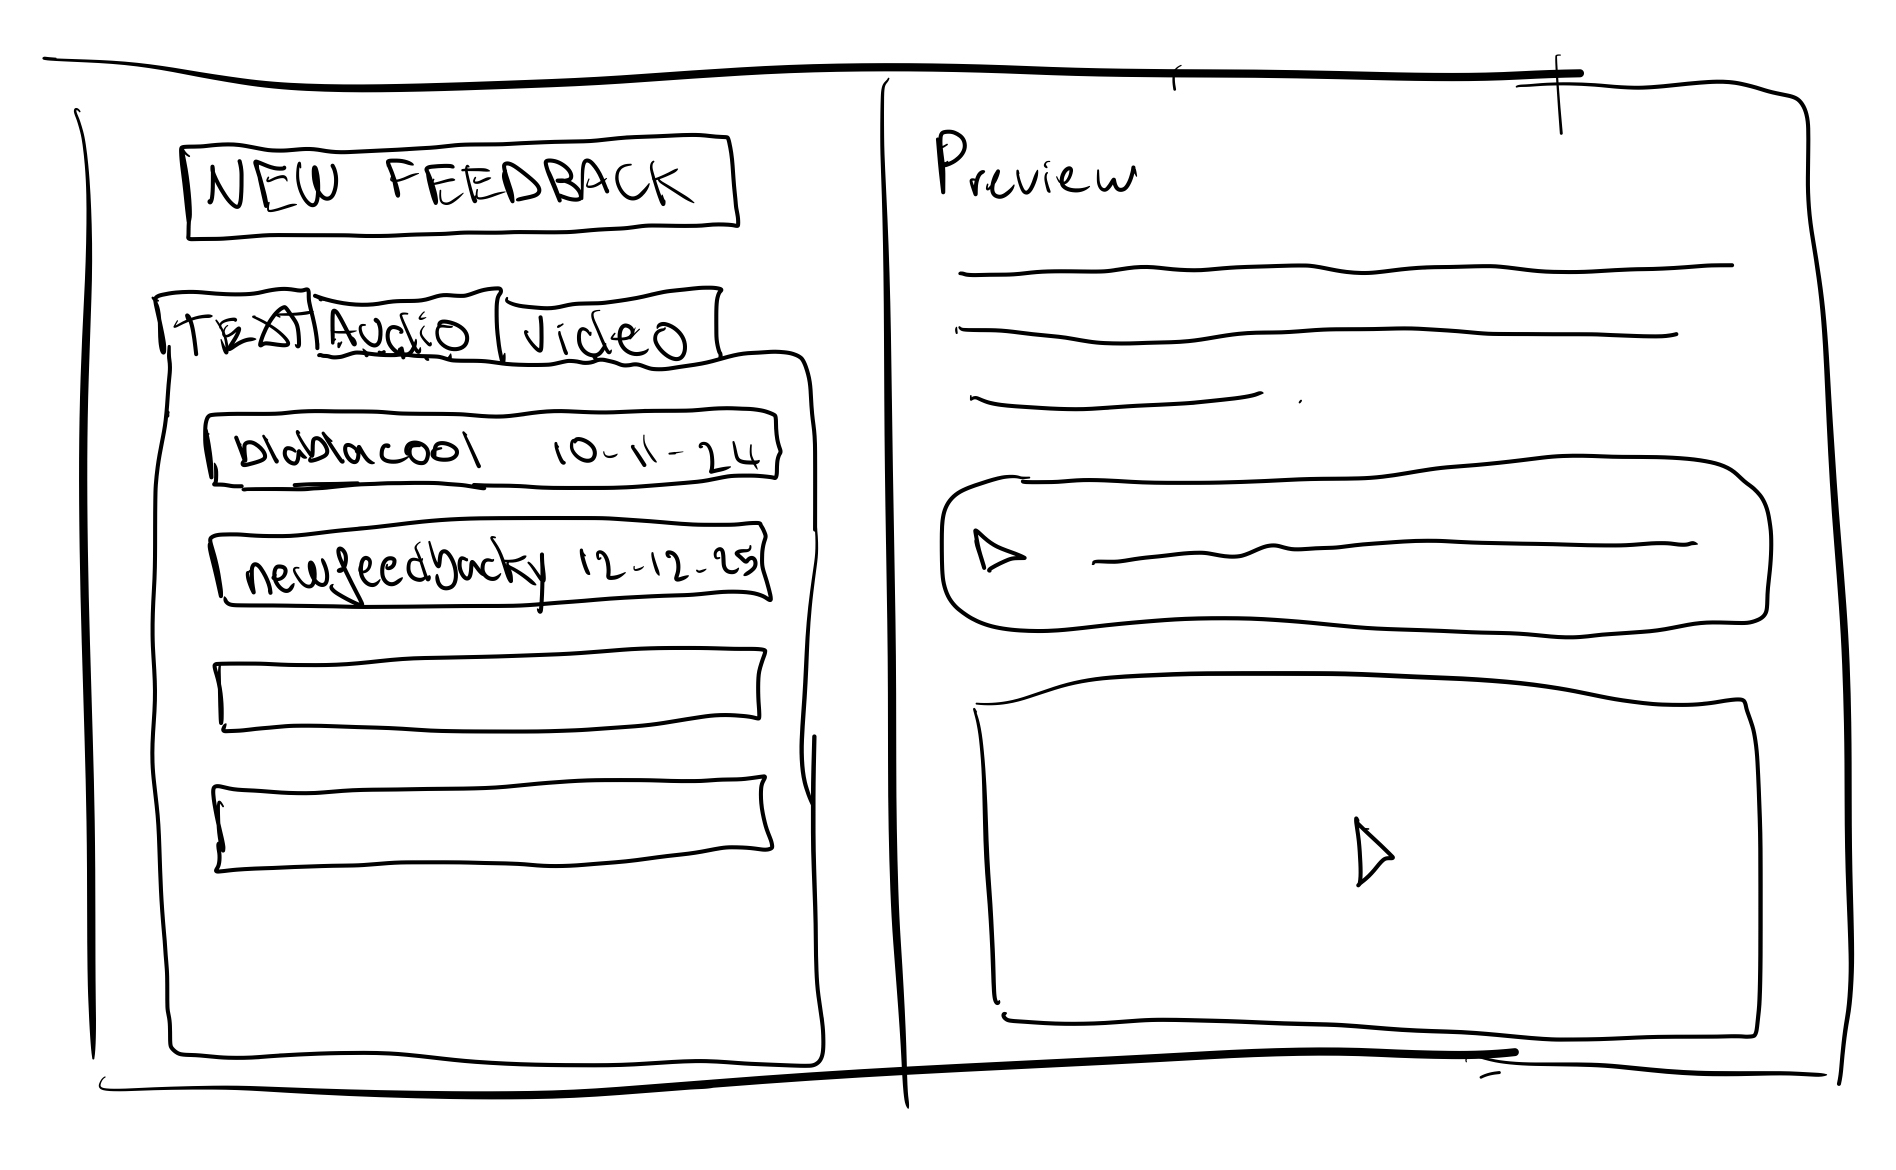 NEW FEEDBACK
TEXT Audio Video
blablacool 10-11-24
newfeedbacky 12-12-25
Preview